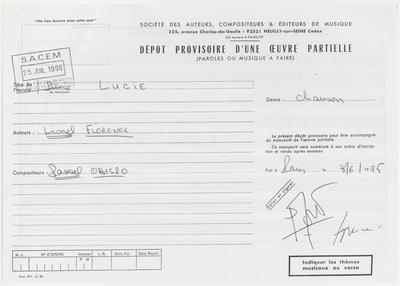 "Ne rien inscrire dans cette case"
SOCIÉTÉ DES AUTEURS, COMPOSITEURS & ÉDITEURS DE MUSIQUE
225, avenue Charles-de-Gaulle - 92521 NEUILLY-sur-SEINE Cedex
DÉPOT PROVISOIRE D'UNE ŒUVRE PARTIELLE
(PAROLES OU MUSIQUE A FAIRE)
S.A.C.E.M
25 JUIL 1996
Titre de l'œuvre : LUCIE
Genre : Chanson
Auteurs : Lionel FLORENCE
Le présent dépôt provisoire peut être accompagné
du manuscrit de l'œuvre partielle.
Ce manuscrit sera numéroté à son ordre d'inscription
et rendu après examen.
Compositeurs : Pascal OBISPO
Fait à Paris, le
Dater et signer
N.L.
N° D'ORDRE
Version
P M
I.R.
Date Po.
Date Récit.
Indiquer les thèmes
musicaux au verso